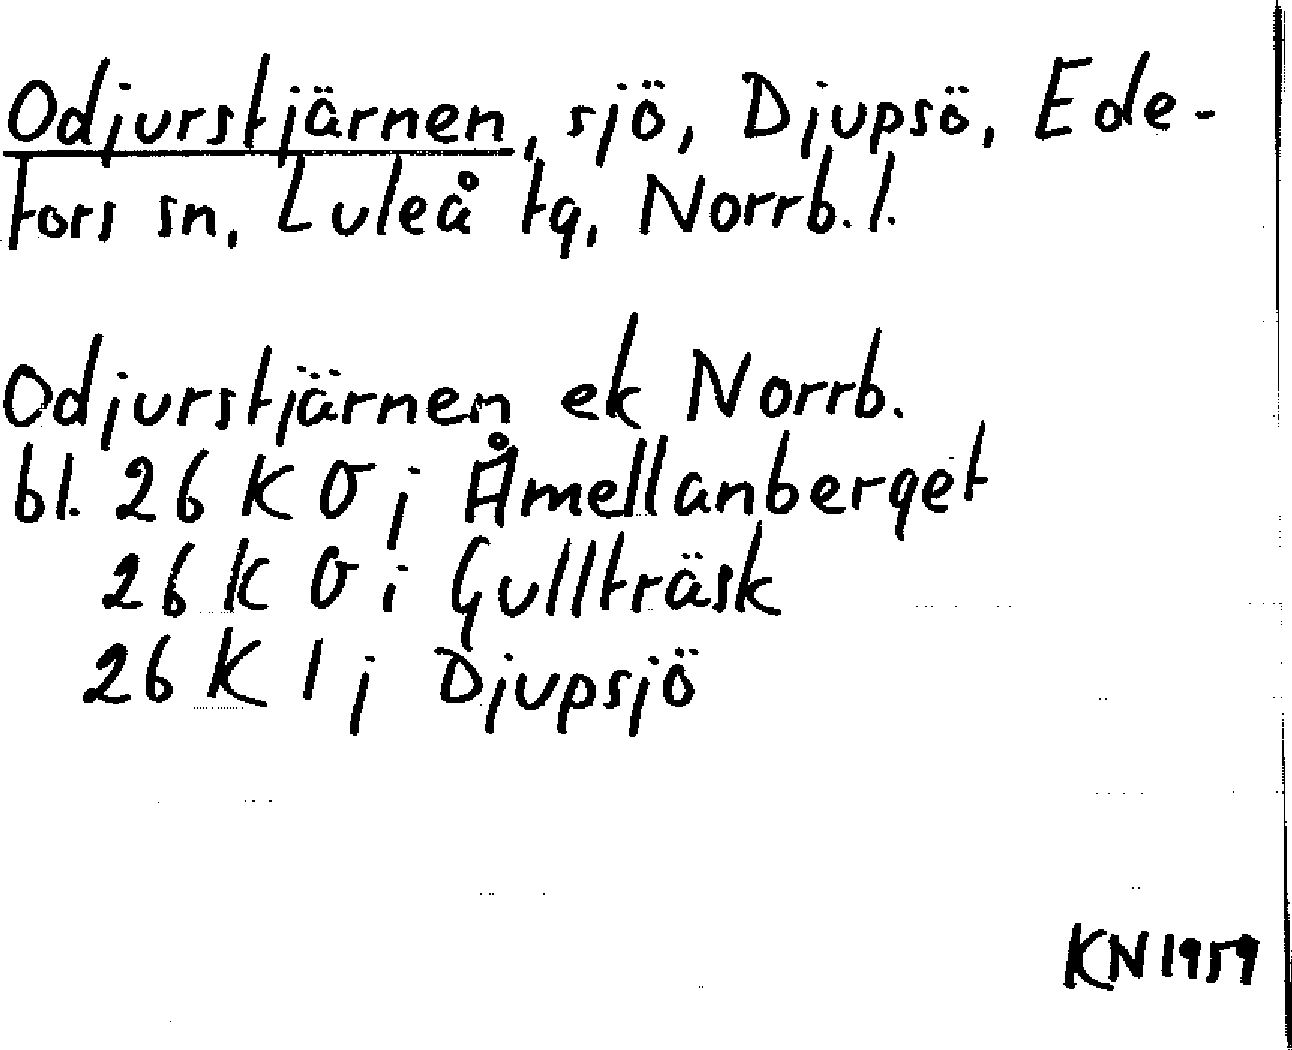 Odjurstjärnen, sjö, Djupsö, Ede-
fors sn, Luleå tg, Norrb. l.
Odjurstjärnen ek Norrb.
bl. 26 K 0 j Åmellanberget
26 K 0 i Gullträsk
26 K 1 j Djupsjö
KN 1959